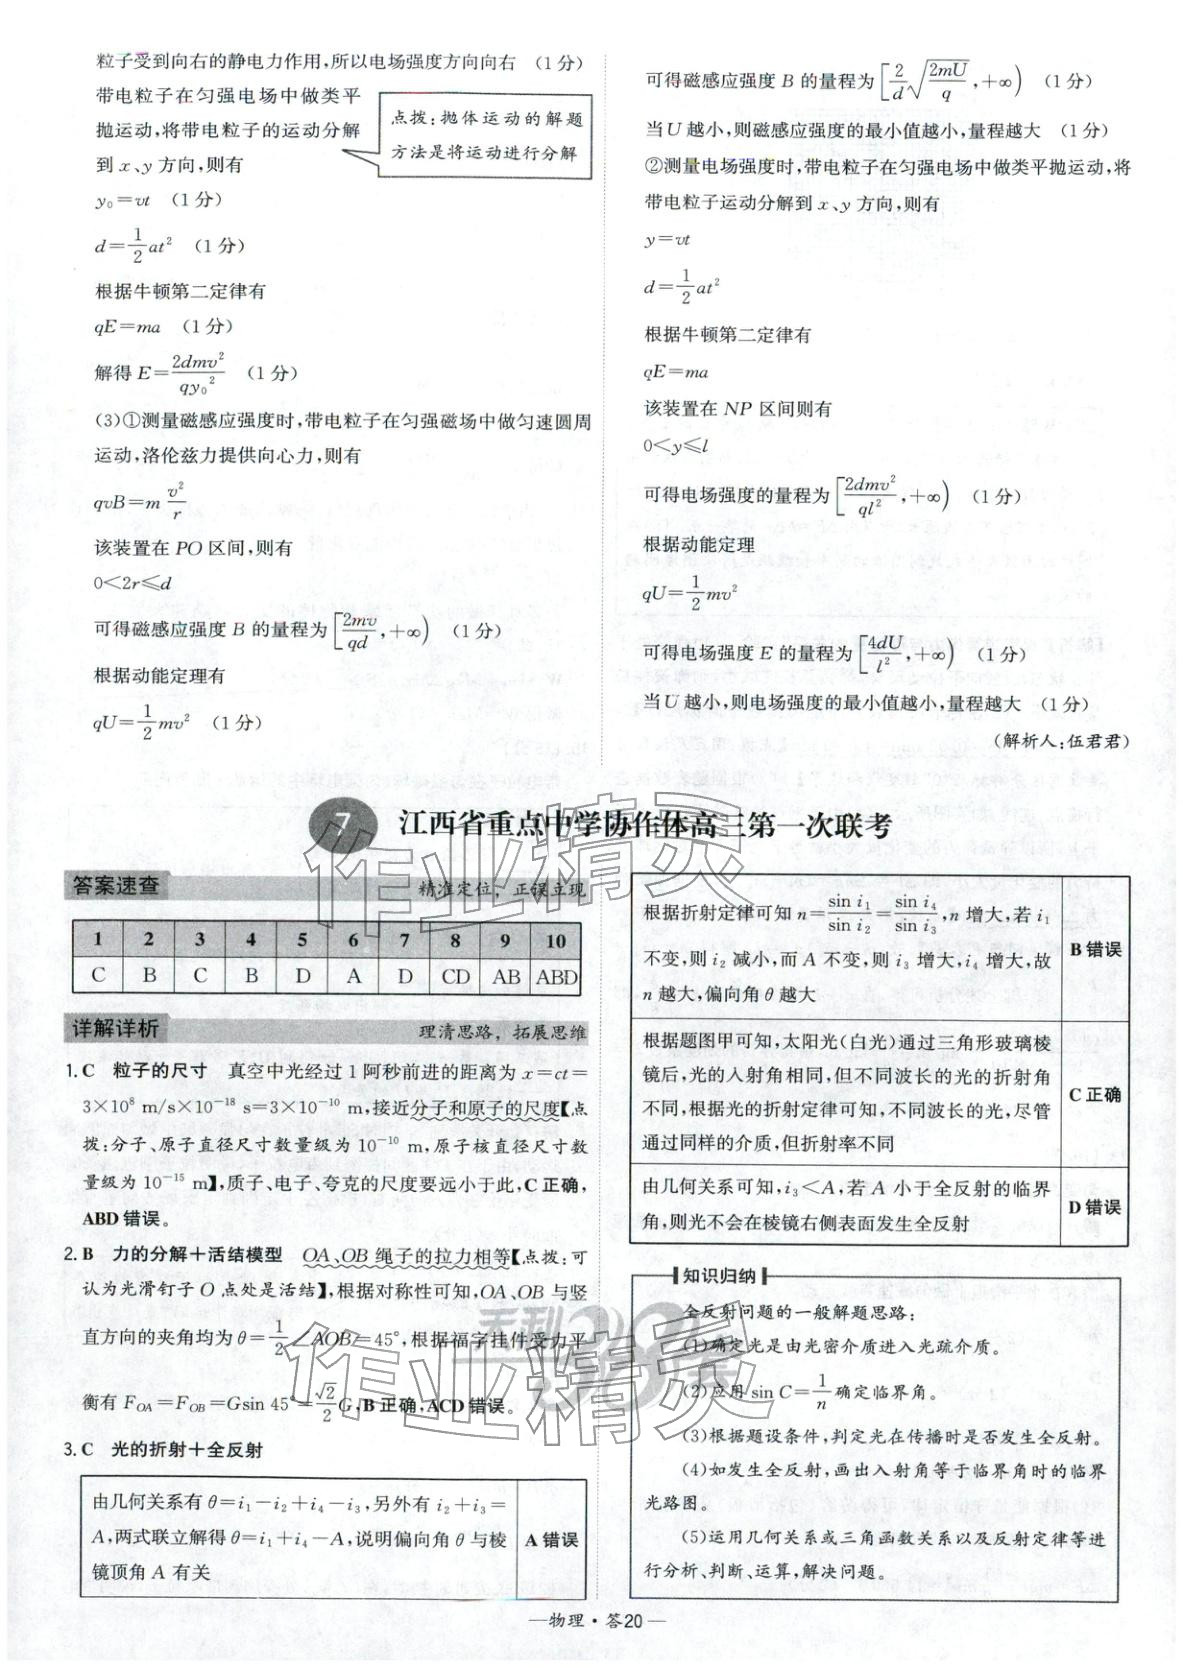 粒子受到向右的静电力作用,所以电场强度方向向右 (1分)
带电粒子在匀强电场中做类平
抛运动,将带电粒子的运动分解
到 x、y 方向,则有
点拨:抛体运动的解题
方法是将运动进行分解
y₀=vt (1分)
d=1/2 at² (1分)
根据牛顿第二定律有
qE=ma (1分)
解得 E=2dmv²/qy₀² (1分)
(3)①测量磁感应强度时,带电粒子在匀强磁场中做匀速圆周
运动,洛伦兹力提供向心力,则有
qvB=m v²/r
该装置在 PO 区间,则有
0<2r⩽d
可得磁感应强度 B 的量程为[2mv/qd,+∞) (1分)
根据动能定理有
qU=1/2 mv² (1分)
可得磁感应强度 B 的量程为[2/d √(2mU/q),+∞) (1分)
当 U 越小,则磁感应强度的最小值越小,量程越大 (1分)
②测量电场强度时,带电粒子在匀强电场中做类平抛运动,将
带电粒子运动分解到 x、y 方向,则有
y=vt
d=1/2 at²
根据牛顿第二定律有
qE=ma
该装置在 NP 区间则有
0<y⩽l
可得电场强度的量程为[2dmv²/ql²,+∞) (1分)
根据动能定理
qU=1/2 mv²
可得电场强度 E 的量程为[4dU/l²,+∞) (1分)
当 U 越小,则电场强度的最小值越小,量程越大 (1分)
(解析人:伍君君)
7 江西省重点中学协作体高三第一次联考
答案速查 精准定位,正误立现
1 2 3 4 5 6 7 8 9 10
C B C B D A D CD AB ABD
详解详析 理清思路,拓展思维
1. C 粒子的尺寸 真空中光经过 1 阿秒前进的距离为 x=ct=
3×10⁸ m/s×10⁻¹⁸ s=3×10⁻¹⁰ m,接近分子和原子的尺度【点
拨:分子、原子直径尺寸数量级为 10⁻¹⁰ m,原子核直径尺寸数
量级为 10⁻¹⁵ m】,质子、电子、夸克的尺度要远小于此,C 正确,
ABD 错误。
2. B 力的分解+活结模型 OA、OB 绳子的拉力相等【点拨:可
认为光滑钉子 O 点处是活结】,根据对称性可知,OA、OB 与竖
直方向的夹角均为 θ=1/2∠AOB=45°,根据福字挂件受力平
衡有 F_OA=F_OB=Gsin 45°=√2/2 G,B 正确,ACD 错误。
3. C 光的折射+全反射
由几何关系有 θ=i₁−i₂+i₄−i₃,另外有 i₂+i₃=
A,两式联立解得 θ=i₁+i₄−A,说明偏向角 θ 与棱
镜顶角 A 有关
A 错误
根据折射定律可知 n=sin i₁/sin i₂=sin i₄/sin i₃,n 增大,若 i₁
不变,则 i₂ 减小,而 A 不变,则 i₃ 增大,i₄ 增大,故
n 越大,偏向角 θ 越大
B 错误
根据题图甲可知,太阳光(白光)通过三角形玻璃棱
镜后,光的入射角相同,但不同波长的光的折射角
不同,根据光的折射定律可知,不同波长的光,尽管
通过同样的介质,但折射率不同
C 正确
由几何关系可知,i₃<A,若 A 小于全反射的临界
角,则光不会在棱镜右侧表面发生全反射
D 错误
知识归纳
全反射问题的一般解题思路:
(1)确定光是由光密介质进入光疏介质。
(2)应用 sin C=1/n 确定临界角。
(3)根据题设条件,判定光在传播时是否发生全反射。
(4)如发生全反射,画出入射角等于临界角时的临界
光路图。
(5)运用几何关系或三角函数关系以及反射定律等进
行分析、判断、运算,解决问题。
作业精灵
作业精灵
天利38套
—物理·答20—